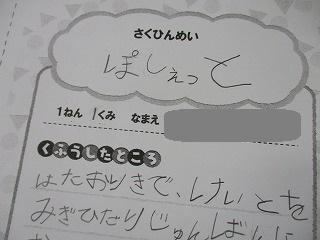 さくひんめい
ぽしぇっと
1ねん 1くみ なまえ
くふうしたところ
はたおりきで、けいとを
みぎひだりじゅんばんに